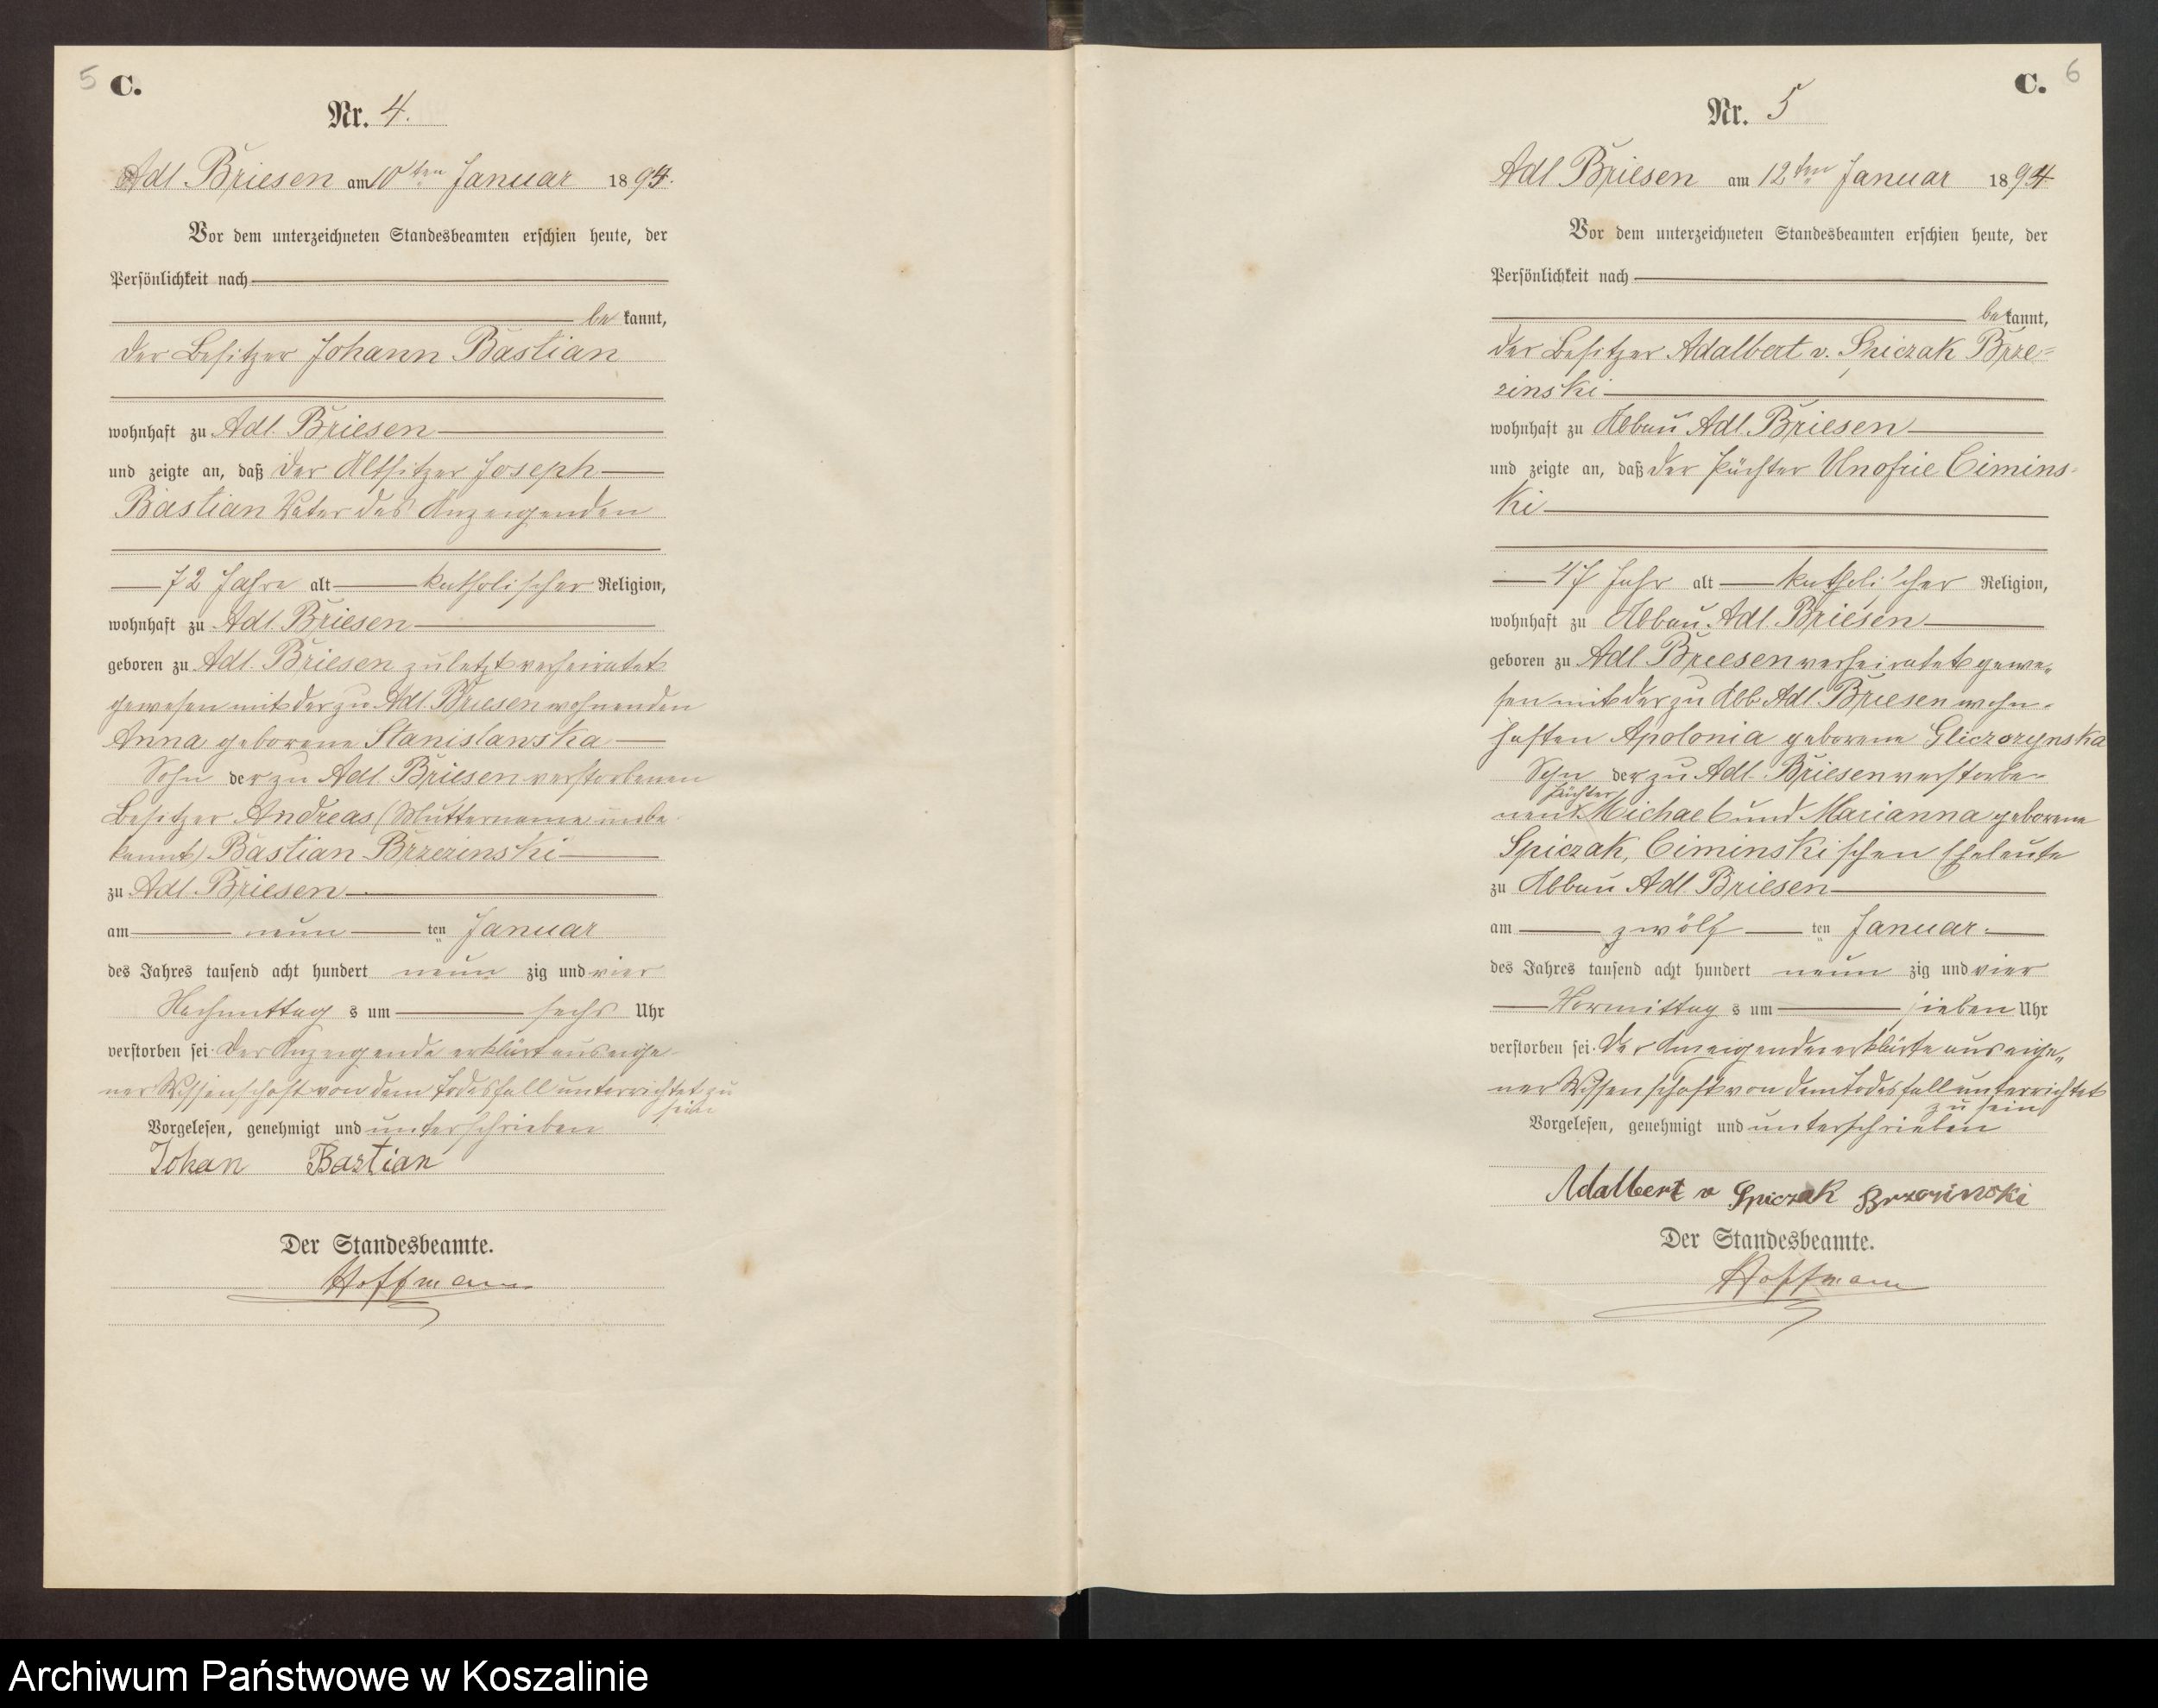 5 C.
Nr. 4.
Adl. Briesen am 10ten Januar 1894.
Vor dem unterzeichneten Standesbeamten erschien heute, der
Persönlichkeit nach
be kannt,
der Besitzer Johann Bastian
wohnhaft zu Adl. Briesen
und zeigte an, daß der Altsitzer Joseph
Bastian Vater des Anzeigenden
72 Jahre alt katholischer Religion,
wohnhaft zu Adl. Briesen
geboren zu Adl. Briesen zuletzt verheiratet
gewesen mit der zu Adl. Briesen wohnenden
Anna geborene Stanislawska
Sohn der zu Adl. Briesen verstorbenen
Besitzer Andreas (Muttername unbe
kannt) Bastian Brzezinski
zu Adl. Briesen
am neun ten Januar
des Jahres tausend acht hundert neun zig und vier
Nachmittag s um sechs Uhr
verstorben sei. Der Anzeigende erklärt aus eige-
ner Wissenschaft von dem Todesfall unterrichtet zu
sein
Vorgelesen, genehmigt und unterschrieben
Johan Bastian
Der Standesbeamte.
Hoffmann
C. 6
Nr. 5
Adl Briesen am 12ten Januar 1894
Vor dem unterzeichneten Standesbeamten erschien heute, der
Persönlichkeit nach
be kannt,
der Besitzer Adalbert v. Spiczak Brze=
zinski
wohnhaft zu Abbau Adl. Briesen
und zeigte an, daß der Pächter Unofrie Cimins-
ki
47 Jahr alt katholischer Religion,
wohnhaft zu Abbau Adl. Briesen
geboren zu Adl Briesen verheiratet gewe-
sen mit der zu Abb. Adl. Briesen wohn-
haften Apolonia geborene Gliczozynska
Sohn der zu Adl. Briesen verstorbe-
Pächter
nen Michael und Marianna geborene
Spiczak, Ciminskischen Eheleute
zu Abbau Adl. Briesen
am zwölf ten Januar
des Jahres tausend acht hundert neun zig und vier
Vormittag s um sieben Uhr
verstorben sei. Der Anzeigende erklärte aus eige-
ner Wissenschaft von dem Todesfall unterrichtet
zu sein
Vorgelesen, genehmigt und unterschrieben
Adalbert v Spiczak Brzezinski
Der Standesbeamte.
Hoffmann
Archiwum Państwowe w Koszalinie